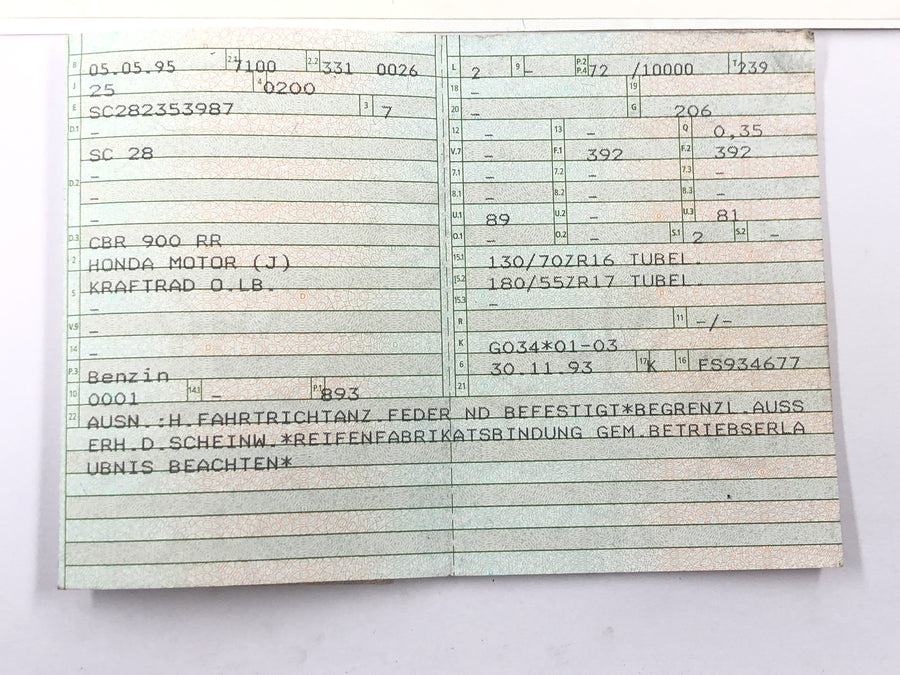 B 05.05.95 2.1 7100 2.2 331 0026
J 25 4 0200
E SC282353987 3 7
D.1 –
SC 28
D.2 –
–
–
D.3 CBR 900 RR
2 HONDA MOTOR (J)
5 KRAFTRAD O.LB.
–
V.9 –
14 –
P.3 Benzin
10 0001 14.1 – P.1 893
L 2 9 – P.2 P.4 72 /10000 T 239
18 – 19
20 – G 206
12 – 13 – Q 0,35
V.7 – F.1 392 F.2 392
7.1 – 7.2 – 7.3 –
8.1 – 8.2 – 8.3 –
U.1 89 U.2 – U.3 81
O.1 – O.2 – S.1 2 S.2 –
15.1 130/70ZR16 TUBEL.
15.2 180/55ZR17 TUBEL.
15.3 –
R 11 –/–
K G034*01-03
6 30.11.93 17 K 16 FS934677
21
22 AUSN.:H.FAHRTRICHTANZ.FEDER ND BEFESTIGT*BEGRENZL.AUSS
ERH.D.SCHEINW.*REIFENFABRIKATSBINDUNG GEM.BETRIEBSERLA
UBNIS BEACHTEN*